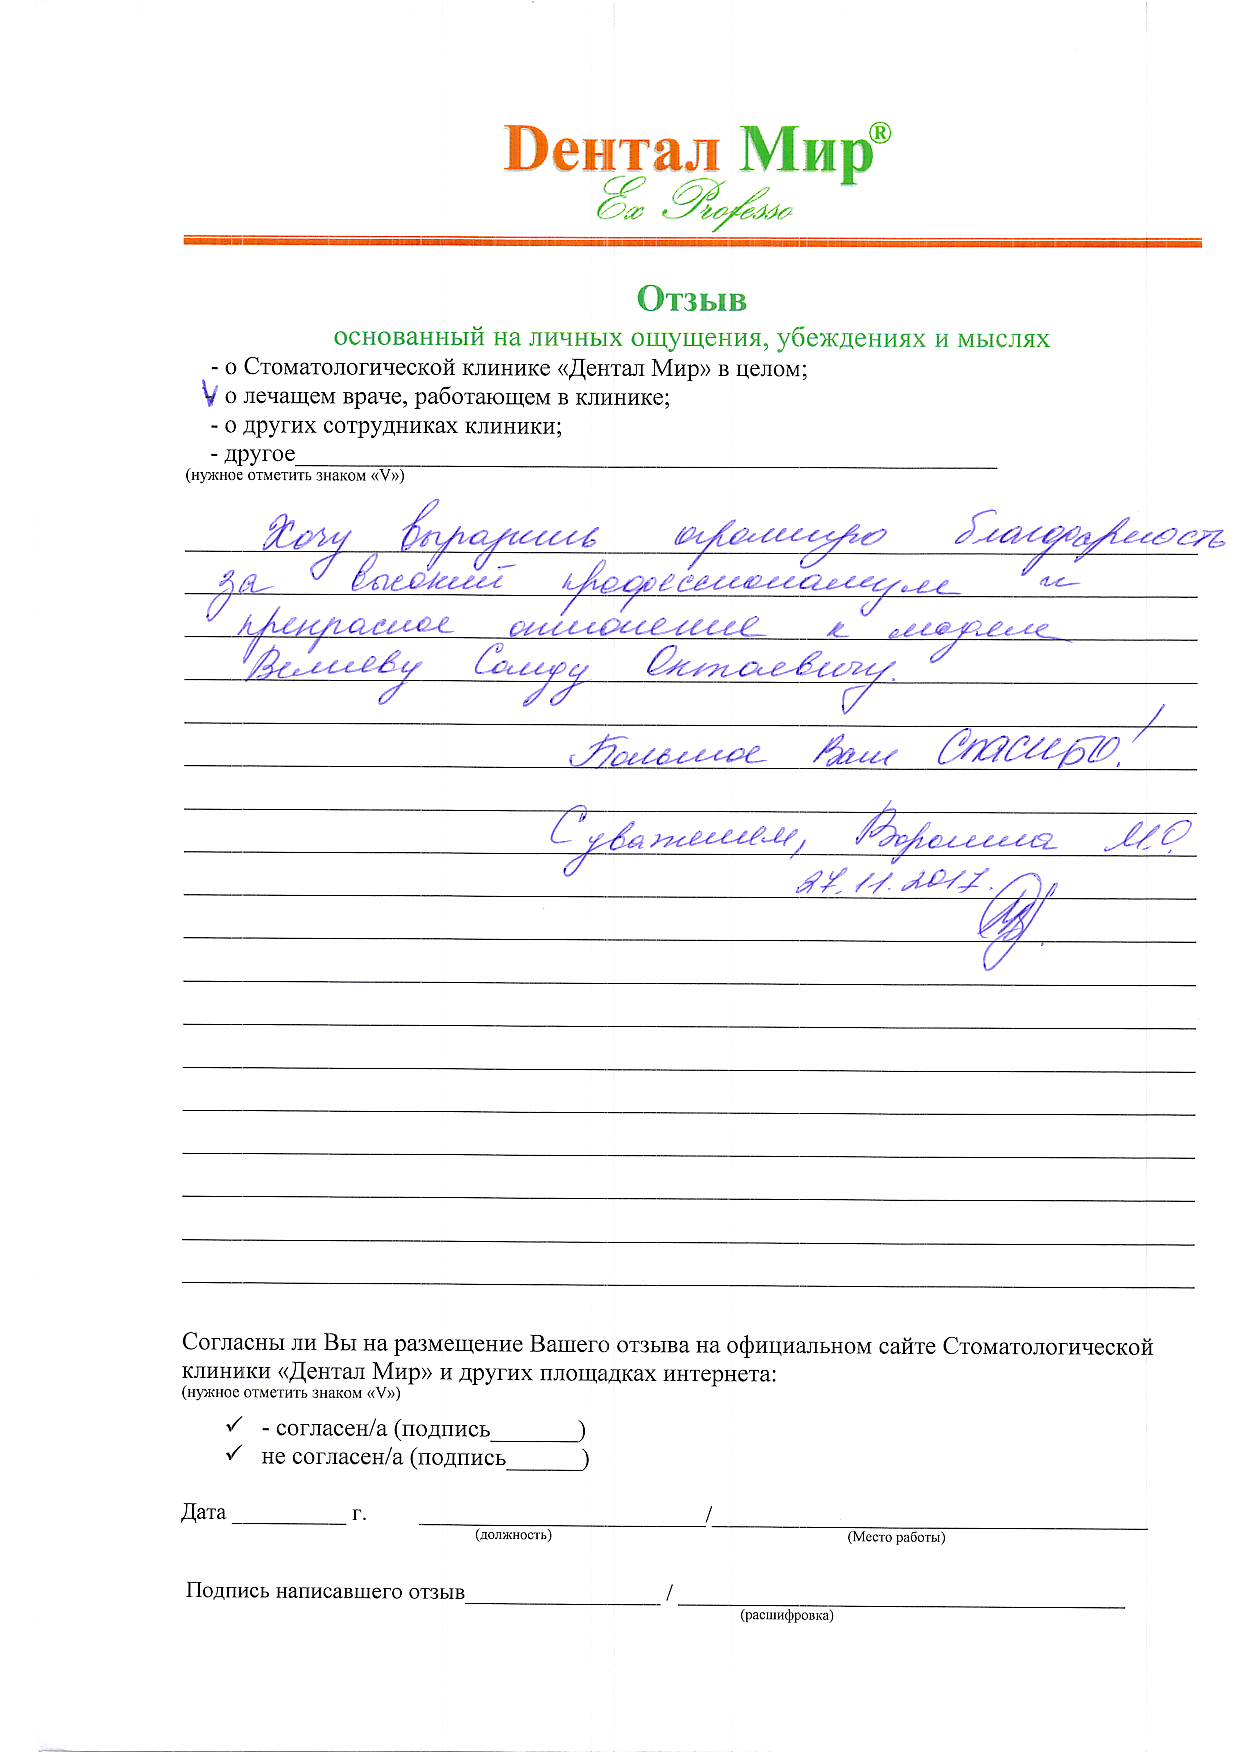 Dентал Мир®
Ex Professo
Отзыв
основанный на личных ощущения, убеждениях и мыслях
- о Стоматологической клинике «Дентал Мир» в целом;
V о лечащем враче, работающем в клинике;
- о других сотрудниках клиники;
- другое
(нужное отметить знаком «V»)
Хочу выразить огромную благодарность
за высокий профессионализм и
прекрасное отношение к людям
Велиеву Саиду Октаевичу.
Большое Вам СПАСИБО!
С уважением, Воронина М.О.
27.11.2017.
Согласны ли Вы на размещение Вашего отзыва на официальном сайте Стоматологической
клиники «Дентал Мир» и других площадках интернета:
(нужное отметить знаком «V»)
✓ - согласен/а (подпись_______)
✓ не согласен/а (подпись______)
Дата _________ г. /
(должность) (Место работы)
Подпись написавшего отзыв_______________ /
(расшифровка)